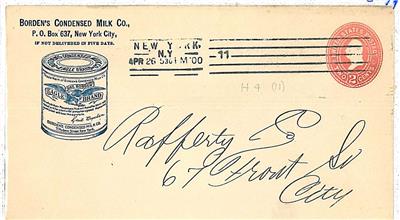 BORDEN'S CONDENSED MILK CO.,
P. O. Box 637, New York City,
IF NOT DELIVERED IN FIVE DAYS.
EAGLE BRAND
NEW YORK.
N.Y.
APR 26 5 30 PM '00
11
2 CENTS 2
H 4 (11)
Rafferty Co
67 Front St
City